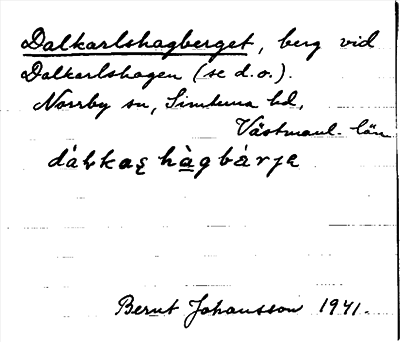 Dalkarlshagberget, berg vid
Dalkarlshagen (se d.o.).
Norrby sn, Simtuna hd,
Västmanl. län
dáɫkaʂ hàgbárja
Bernt Johansson 1941.